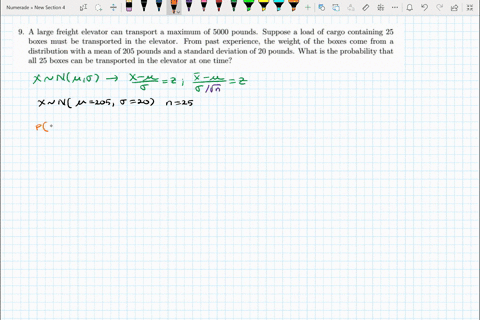 Numerade » New Section 4
9. A large freight elevator can transport a maximum of 5000 pounds. Suppose a load of cargo containing 25
boxes must be transported in the elevator. From past experience, the weight of the boxes come from a
distribution with a mean of 205 pounds and a standard deviation of 20 pounds. What is the probability that
all 25 boxes can be transported in the elevator at one time?
X~N(μ,σ) → X-μ/σ = z ; x̄-μ/σ/√n = z
X~N( μ=205, σ=20) n=25
P(